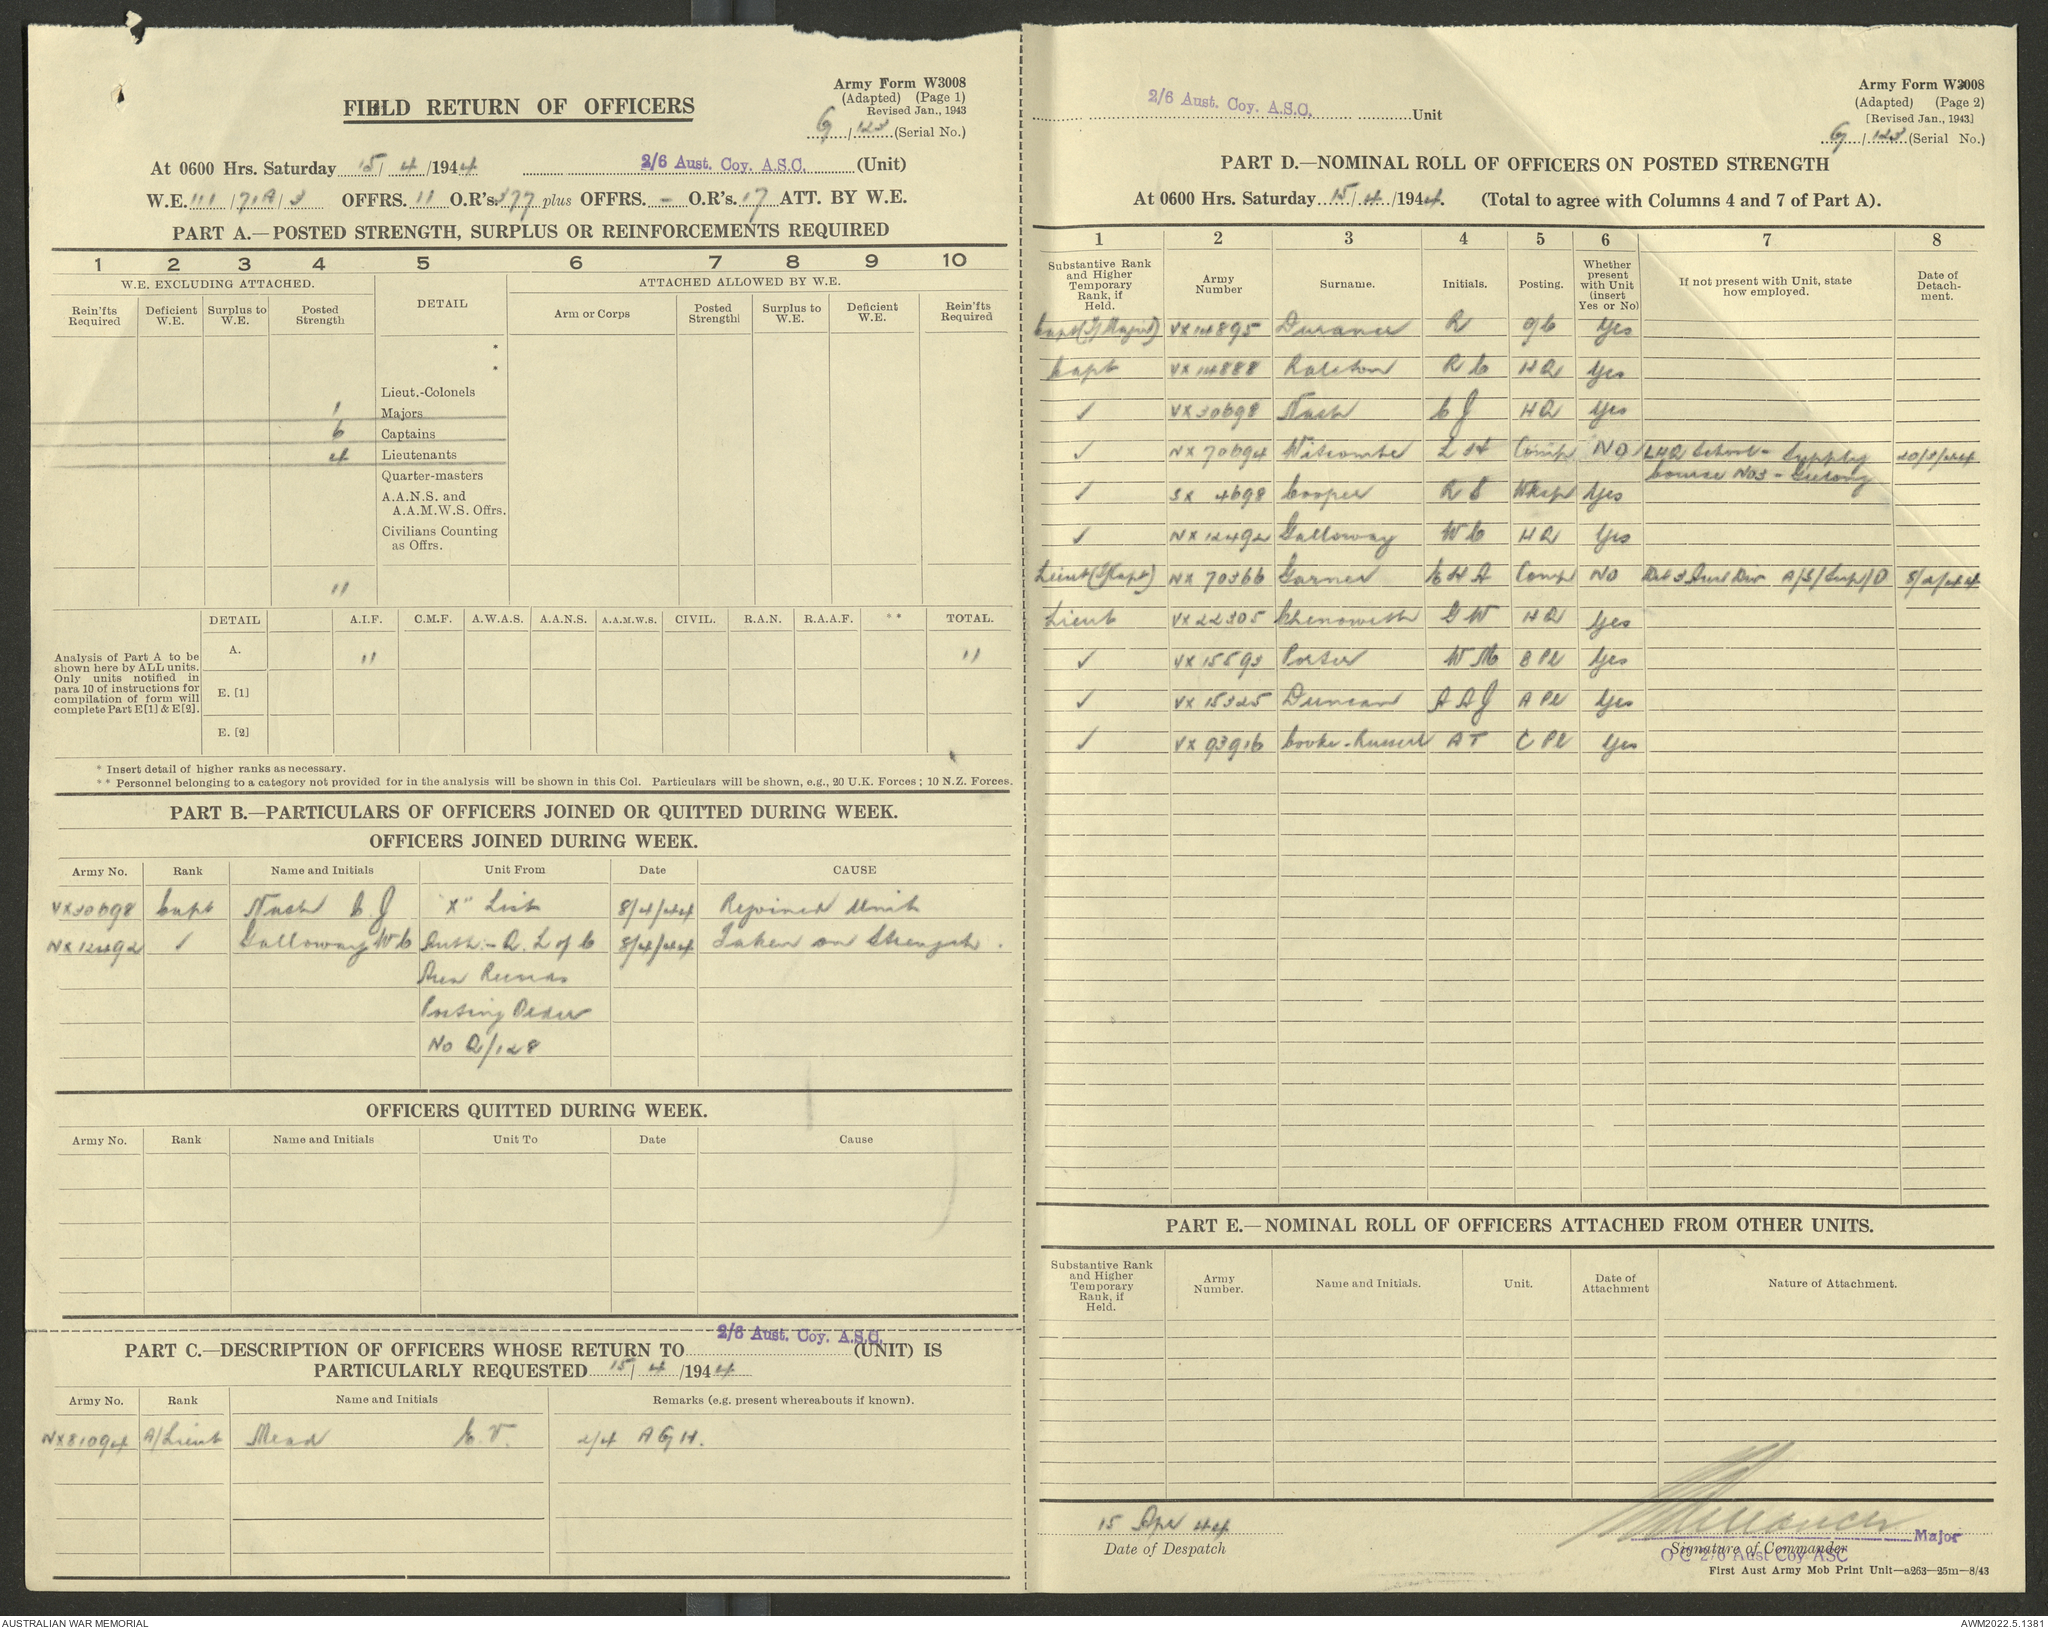 Army Form W3008
(Adapted) (Page 1)
Revised Jan., 1943
G/123 (Serial No.)
FIELD RETURN OF OFFICERS
At 0600 Hrs. Saturday 15/4/1944 2/6 Aust. Coy. A.S.C. (Unit)
W.E. 111/71A/3 OFFRS. 11 O.R's. 377 plus OFFRS. - O.R's. 17 ATT. BY W.E.
PART A.—POSTED STRENGTH, SURPLUS OR REINFORCEMENTS REQUIRED
1 2 3 4 5 6 7 8 9 10
W.E. EXCLUDING ATTACHED. DETAIL ATTACHED ALLOWED BY W.E.
Rein'fts Required Deficient W.E. Surplus to W.E. Posted Strength Arm or Corps Posted Strength Surplus to W.E. Deficient W.E. Rein'fts Required
*
*
Lieut.-Colonels
1 Majors
6 Captains
4 Lieutenants
Quarter-masters
A.A.N.S. and A.A.M.W.S. Offrs.
Civilians Counting as Offrs.
11
DETAIL A.I.F. C.M.F. A.W.A.S. A.A.N.S. A.A.M.W.S. CIVIL. R.A.N. R.A.A.F. ** TOTAL.
Analysis of Part A to be shown here by ALL units. Only units notified in para 10 of instructions for compilation of form will complete Part E[1] & E[2].
A. 11 11
E. [1]
E. [2]
* Insert detail of higher ranks as necessary.
** Personnel belonging to a category not provided for in the analysis will be shown in this Col. Particulars will be shown, e.g., 20 U.K. Forces; 10 N.Z. Forces.
PART B.—PARTICULARS OF OFFICERS JOINED OR QUITTED DURING WEEK.
OFFICERS JOINED DURING WEEK.
Army No. Rank Name and Initials Unit From Date CAUSE
VX30698 Capt Nash C.J "X" List 8/4/44 Rejoined Unit
NX12492 ✓ Galloway WC Auth:- Q. L of C 8/4/44 Taken on Strength.
Area
Posting Order
No Q/128
OFFICERS QUITTED DURING WEEK.
Army No. Rank Name and Initials Unit To Date Cause
PART C.—DESCRIPTION OF OFFICERS WHOSE RETURN TO 2/6 Aust. Coy. A.S.C. (UNIT) IS
PARTICULARLY REQUESTED 15/4/1944
Army No. Rank Name and Initials Remarks (e.g. present whereabouts if known).
NX81094 A/Lieut Mead E.V. 2/4 AGH.
Army Form W3008
(Adapted) (Page 2)
[Revised Jan., 1943]
2/6 Aust. Coy. A.S.C. Unit
G/123 (Serial No.)
PART D.—NOMINAL ROLL OF OFFICERS ON POSTED STRENGTH
At 0600 Hrs. Saturday 15/4/1944. (Total to agree with Columns 4 and 7 of Part A).
1 2 3 4 5 6 7 8
Substantive Rank and Higher Temporary Rank, if Held. Army Number Surname. Initials. Posting. Whether present with Unit (insert Yes or No) If not present with Unit, state how employed. Date of Detachment.
Capt (T/Major) VX14895 Durance R OC Yes
Capt VX14888 Ralston R C HQ Yes
✓ VX30698 Nash C J HQ Yes
✓ NX70694 Witcombe L H Comp NO LHQ School - Supply 20/3/44
Course No3 - Geelong
✓ SX 4698 Cooper R S Wksp Yes
✓ NX12492 Galloway W C HQ Yes
Lieut (T/Capt) NX 70366 Garner E H A Comp NO Det 3 Aust Div A/S/Sup/D 8/2/44
Lieut VX22305 Chenoweth G W HQ Yes
✓ VX15593 Porter W M B Pl Yes
✓ VX15325 Duncan A A J A Pl Yes
✓ VX93916 Cooke-Russell A T C Pl Yes
PART E.—NOMINAL ROLL OF OFFICERS ATTACHED FROM OTHER UNITS.
Substantive Rank and Higher Temporary Rank, if Held. Army Number. Name and Initials. Unit. Date of Attachment Nature of Attachment.
15 Apr 44
Date of Despatch
Major
Signature of Commander
O C 2/6 Aust Coy ASC
First Aust Army Mob Print Unit—a263—25m—8/43
AUSTRALIAN WAR MEMORIAL
AWM2022.5.1381